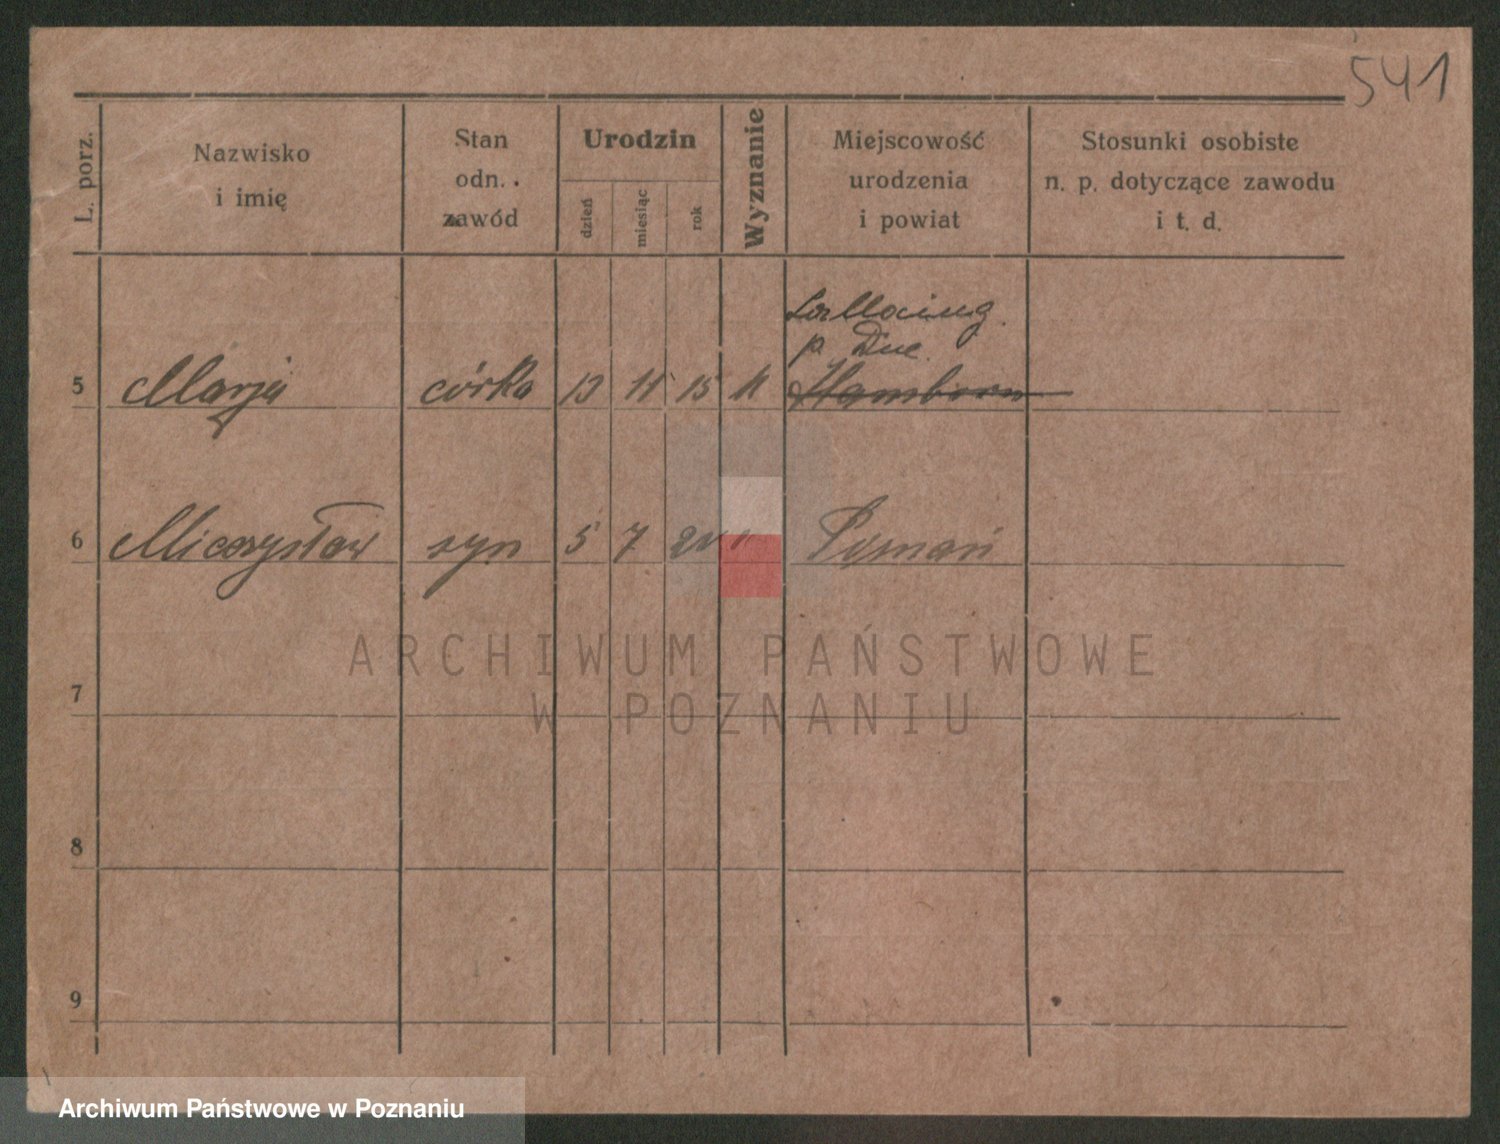 541
L. porz.
Nazwisko
i imię
Stan
odn.
zawód
Urodzin
dzień
miesiąc
rok
Wyznanie
Miejscowość
urodzenia
i powiat
Stosunki osobiste
n. p. dotyczące zawodu
i t. d.
p.
5 Marja córka 13 11 15 k Hamborn
6 Mieczysław syn 5 7 Poznań
7
8
9
ARCHIWUM PAŃSTWOWE
W POZNANIU
Archiwum Państwowe w Poznaniu